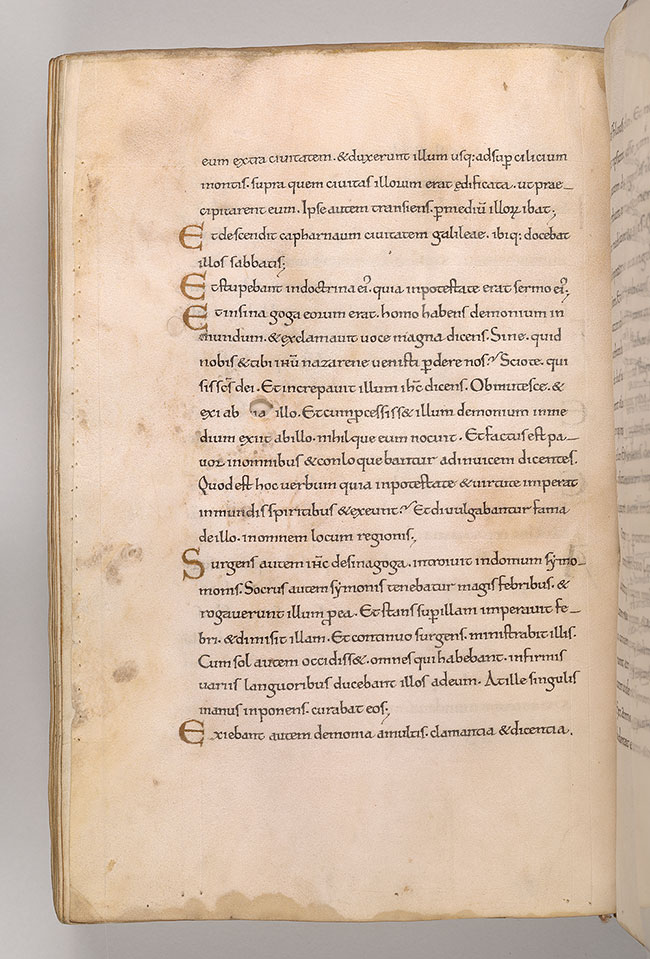 eum extra ciuitatem. &duxerunt illum usq; adsup̄cilicium
montis. supra quem ciuitas illorum erat edificata. ut prae_
cipitarent eum. Ipse autem transiens. p̄mediū illoꝝ ibat;
Et descendit capharnaum ciuitatem galileae. ibiq; docebat
illos sabbatis;
Et stupebant indoctrina ei'. quia inpotestate erat sermo ei';
Et insina goga eorum erat. homo habens demonium in
mundum. &exclamauit uoce magna dicens. Sine. quid
nobis &tibi ihū nazarene uenisti p̄dere nos? Sciote. qui
sis sc̄s dei. Et increpauit illum ihc̄ dicens. Obmutesce. &
exi ab illo. Et cum p̄cessiss& illum demonium inme
dium exiit abillo. nihilque eum nocuit. Et factus est pa_
uor inomnibus &conloquebantur adinuicem dicentes.
Quod est hoc uerbum quia inpotestate &uirtute imperat
inmundis spiritibus &exeunt? Et diuulgabantur fama
deillo. inomnem locum regionis;
Surgens autem ihc̄ desinagoga. introiuit indomum sẏmo_
monis. Socrus autem sẏmonis tenebatur magis febribus. &
rogauerunt illum p̄ea. Et stans sup̄illam imperauit fe_
bri. &dimisit illam. Et continuo surgens. ministrabit illis.
Cum sol autem occidiss&. omnes qui habebant. infirmis
uariis languoribus ducebant illos adeum. At ille singulis
manus inponens. curabat eos;
Exiebant autem demonia amultis. clamantia &dicentia.